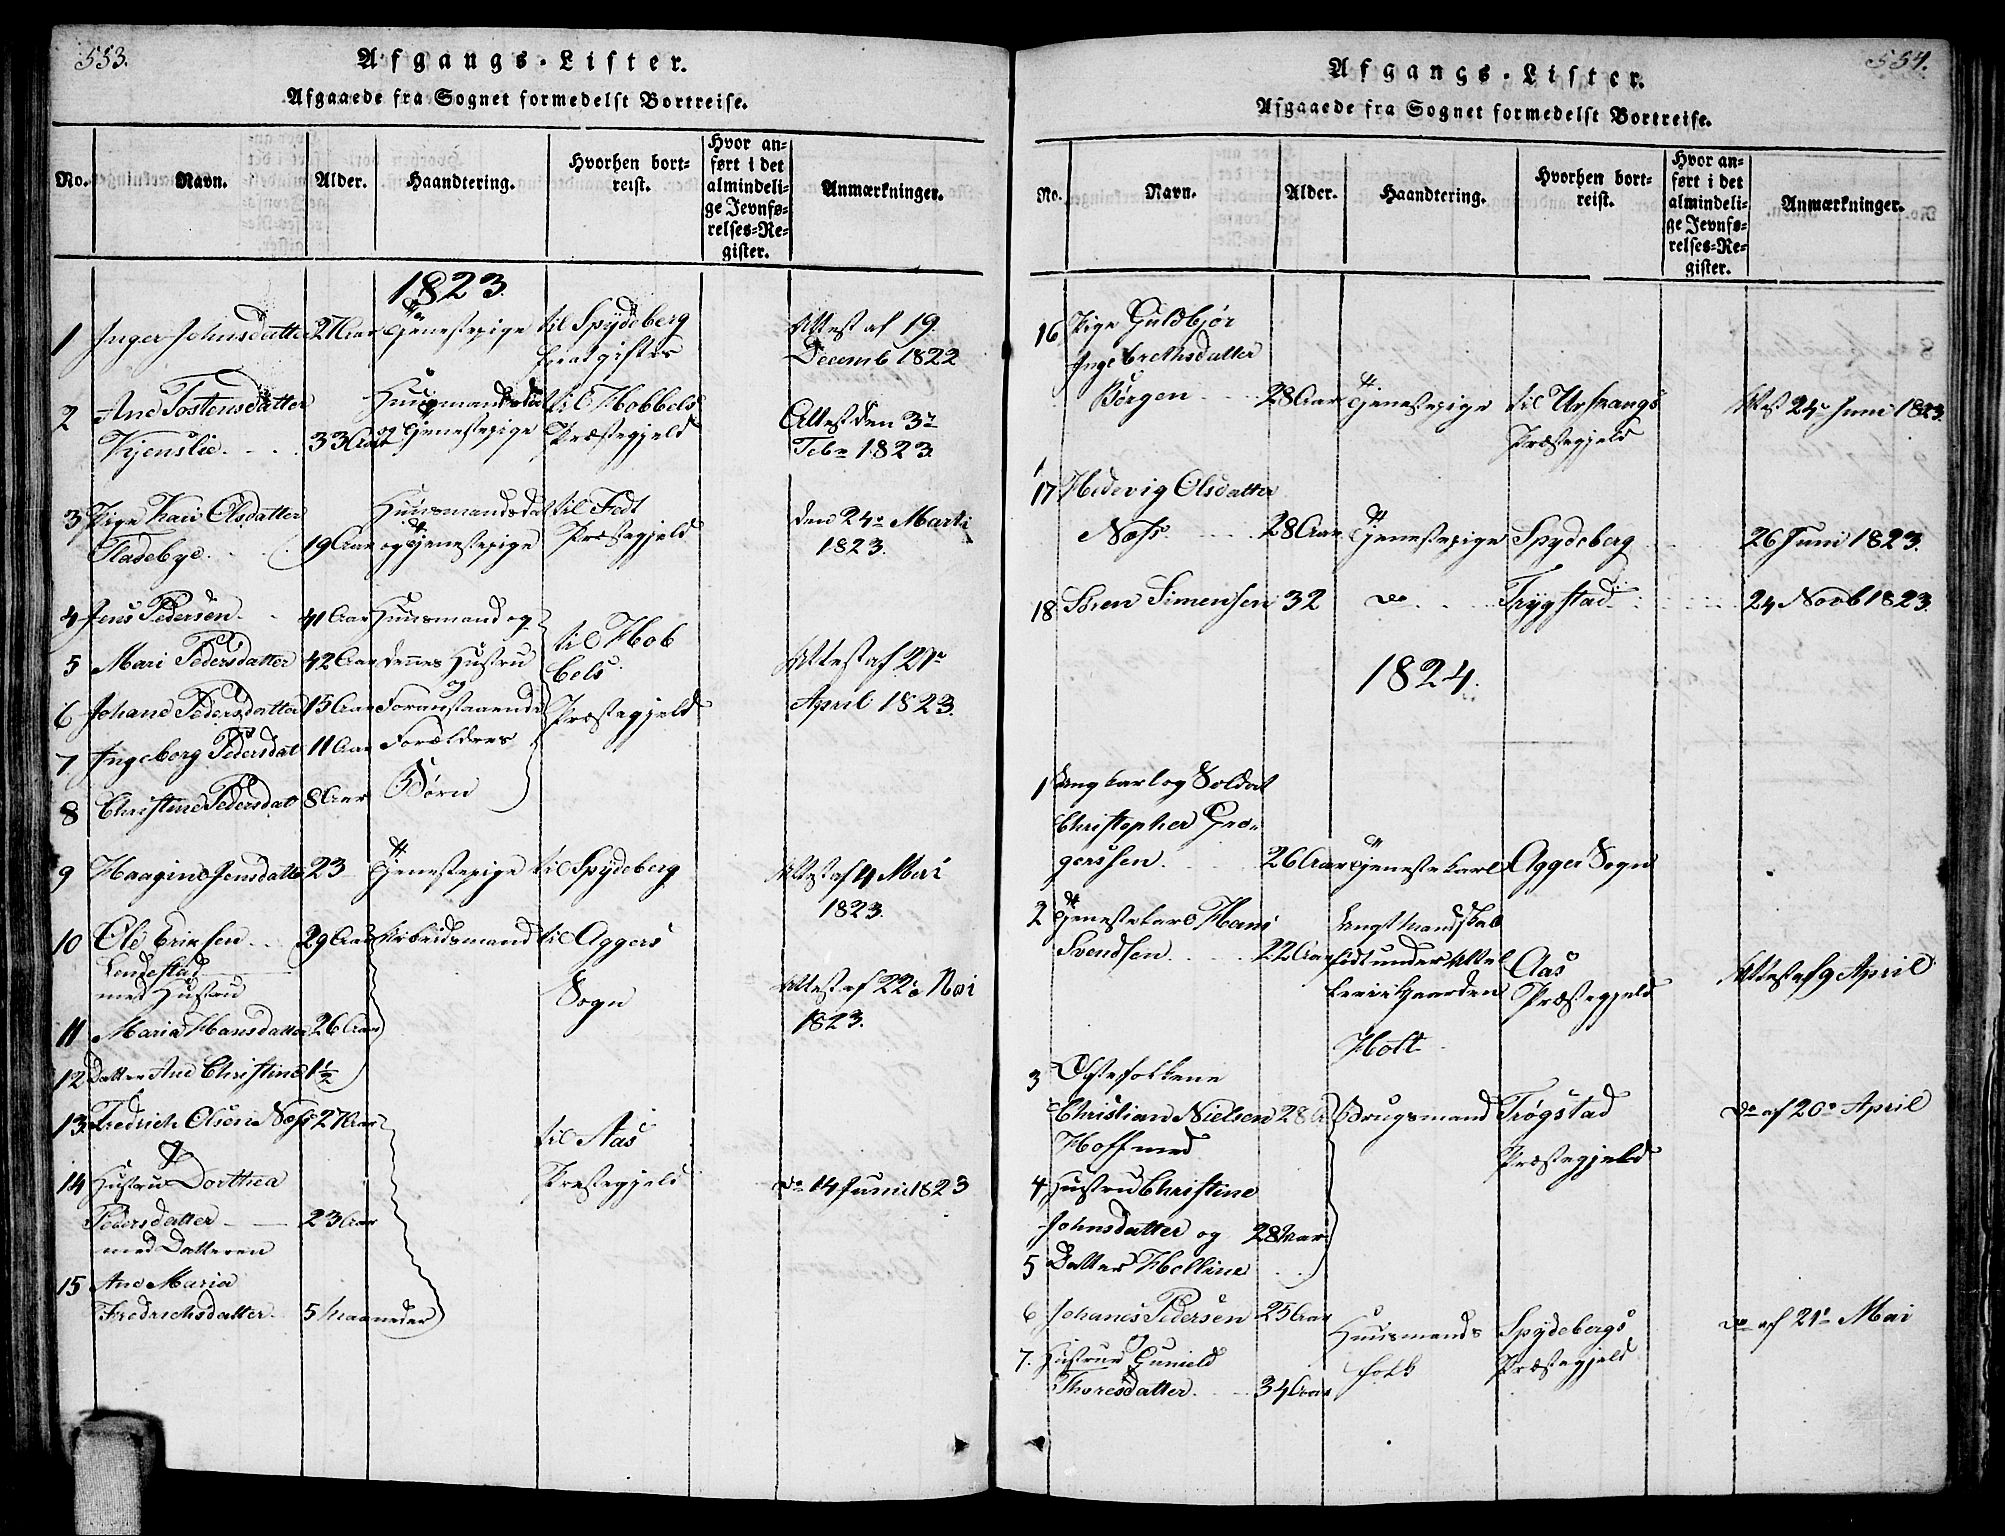 553.
Afgangs-Lister.
Afgaaede fra Sognet formedelst Bortreise.
No. Navn. Alder. Haandtering. Hvorhen bort-reist. Hvor an-ført i det almindeli-ge Jevnfø-relses-Re-gister. Anmærkninger.
1823.
1 Inger Johnsdatter 27 Aar Tjenestepige til Spydeberg Attest af 19.
Decemb 1822
2 Ane Tostensdatter Huusmandsdat til Hobbels Attest den 3
Kjenslie 33 Aar og Tjenestepige Præstegjeld Febr 1823.
3 Pige Kari Olsdatter Huusmandsdat til Fedt den 24 Marti
Fladebye 19 Aar og Tjenestepige Præstegjeld 1823.
4 Jens Pedersen 41 Aar Huusmand og
til Hob
5 Mari Pedersdatter 42 Aar dennes Hustru bels Attest af 21
og
6 Johane Pedersdatter 15 Aar Foranstaaende Præstegjeld April 1823.
7 Ingeborg Pedersdat 11 Aar Forældres
8 Christine Pedersdat 8 Aar Børn
9 Haagine Jensdatter 23 Tjenestepige til Spydeberg Attest af 4 Mai
1823.
10 Ole Eriksen 29 Aar Arbeidsmand til Aggers
med Hustru Sogn Attest af 22 Mai
11 Maria Hansdatter 26 Aar 1823.
12 Datter Ane Christine 1½
13. Fredrich Olsen Næss 27 Aar til Aas
14 Hustru Dorthea Præstegjeld do 14 Juni 1823
Pedersdatter 23 Aar
med Datteren
15 Ane Maria
Fredrichsdatter 5 Maaneder
554.
Afgangs-Lister.
Afgaaede fra Sognet formedelst Bortreise.
No. Navn. Alder. Haandtering. Hvorhen bort-reist. Hvor an-ført i det almindeli-ge Jevnfø-relses-Re-gister. Anmærkninger.
16 Pige Guldbjør
Ingebrethsdatter
Børgen 28 Aar Tjenestepige til Urskougs Attest 24 Juni 1823.
Præstegjeld
17 Hedevig Olsdatter
Næss. 28 Aar Tjenestepige Spydeberg 26 Juni 1823.
18 Søren Simensen 32 do Trygstad 24 Novb 1823.
1824.
1 Ungkarl og Soldat
Christopher Gre-
gerssen 26 Aar Tjenestekarl Agger Sogn
2 Tjenestekarl Hans Ungt Mandskab
Svendsen 22 Aar født under Aas Attest af 9 April
Gaarden Præstegjeld
Holt
3 Ægtefolkene
Christian Nielsen 28 A Brugsmand Trøgstad do af 20 April
Hoff med Præstegjeld
4 Hustru Christine
Johnsdatter og 28 Aar
5 Datter Helline
6 Johanes Pedersen 25 Aar
og Huusmands Spydebergs do af 21 Mai
7. Hustrue Gunild folk Præstegjeld
Thoresdatter 34 Aar